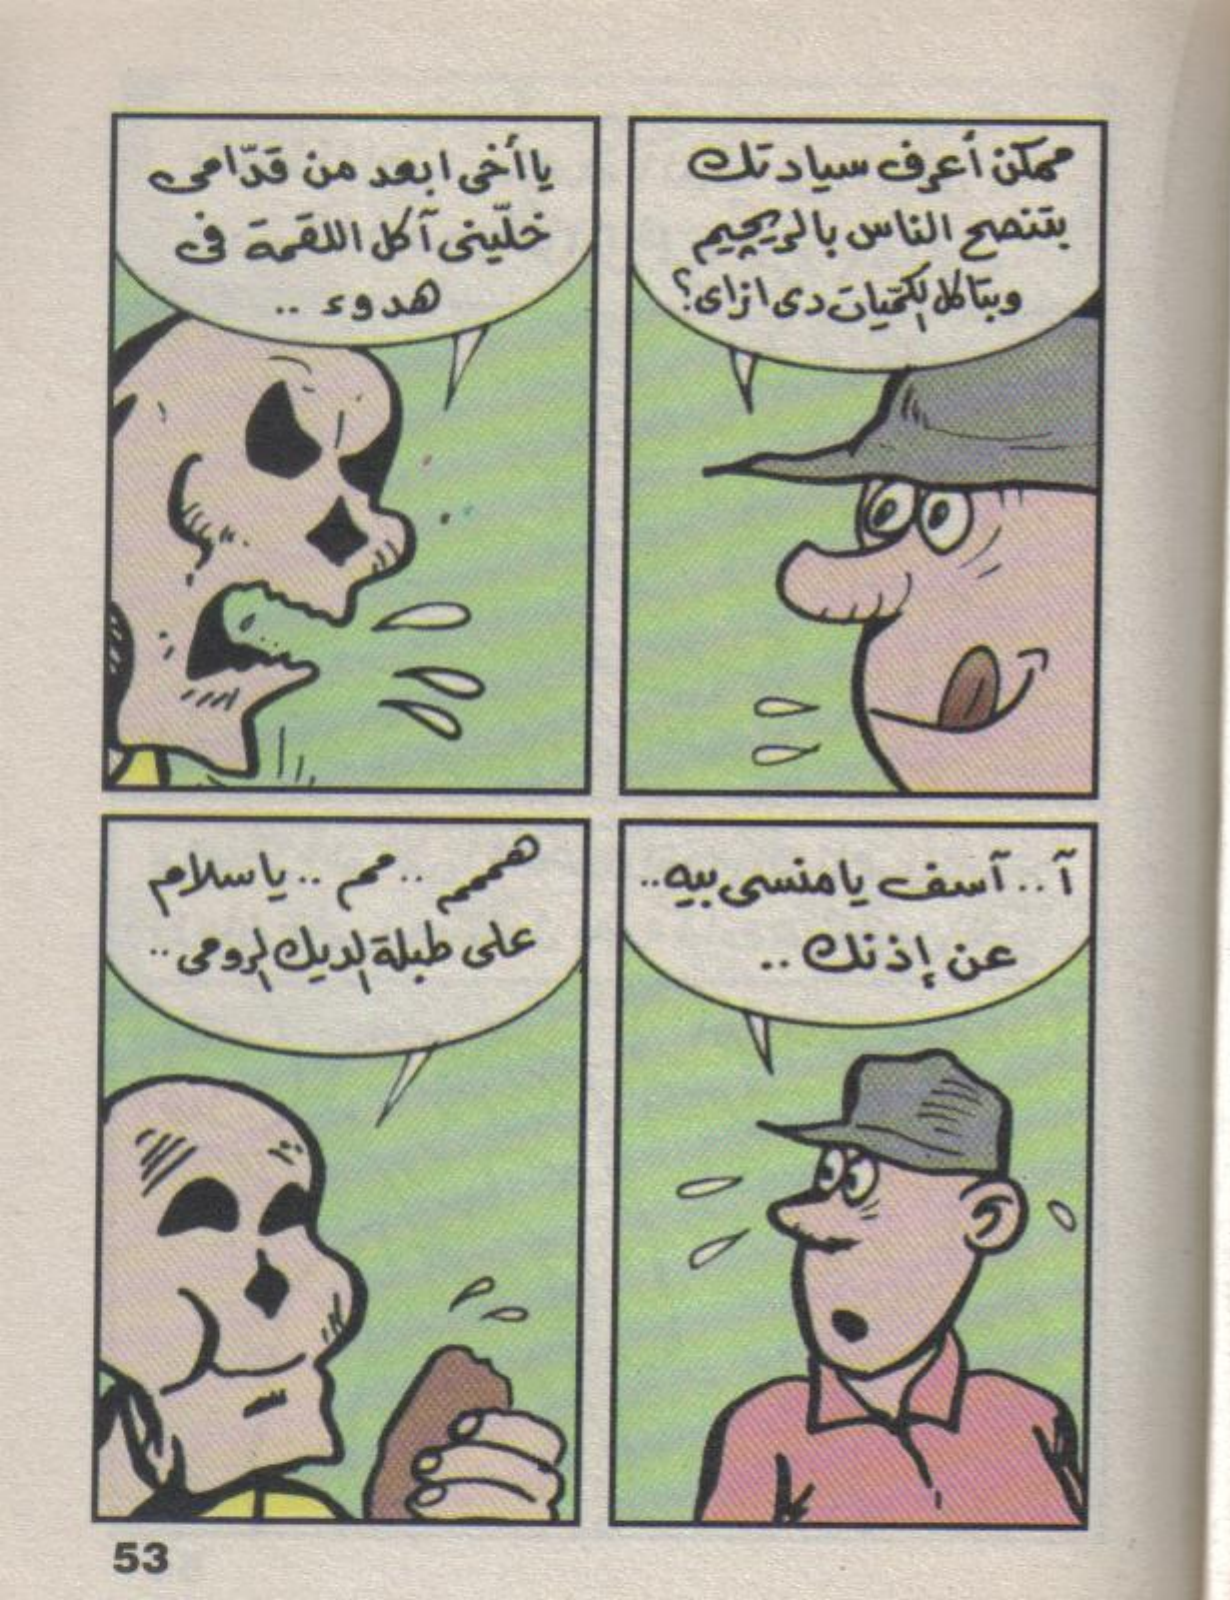 ممكن أعرف سيادتك
بتنصح الناس بالريچيم
وبتاكل الكميّات دى ازاى؟
يا أخى ابعد من قدّامى
خلّينى آكل اللقمة فى
هدوء ..
آ .. آسف يا منسى بيه ..
عن إذنك ..
هممم .. مم .. يا سلام
على طبلة الديك الرومى ..
53